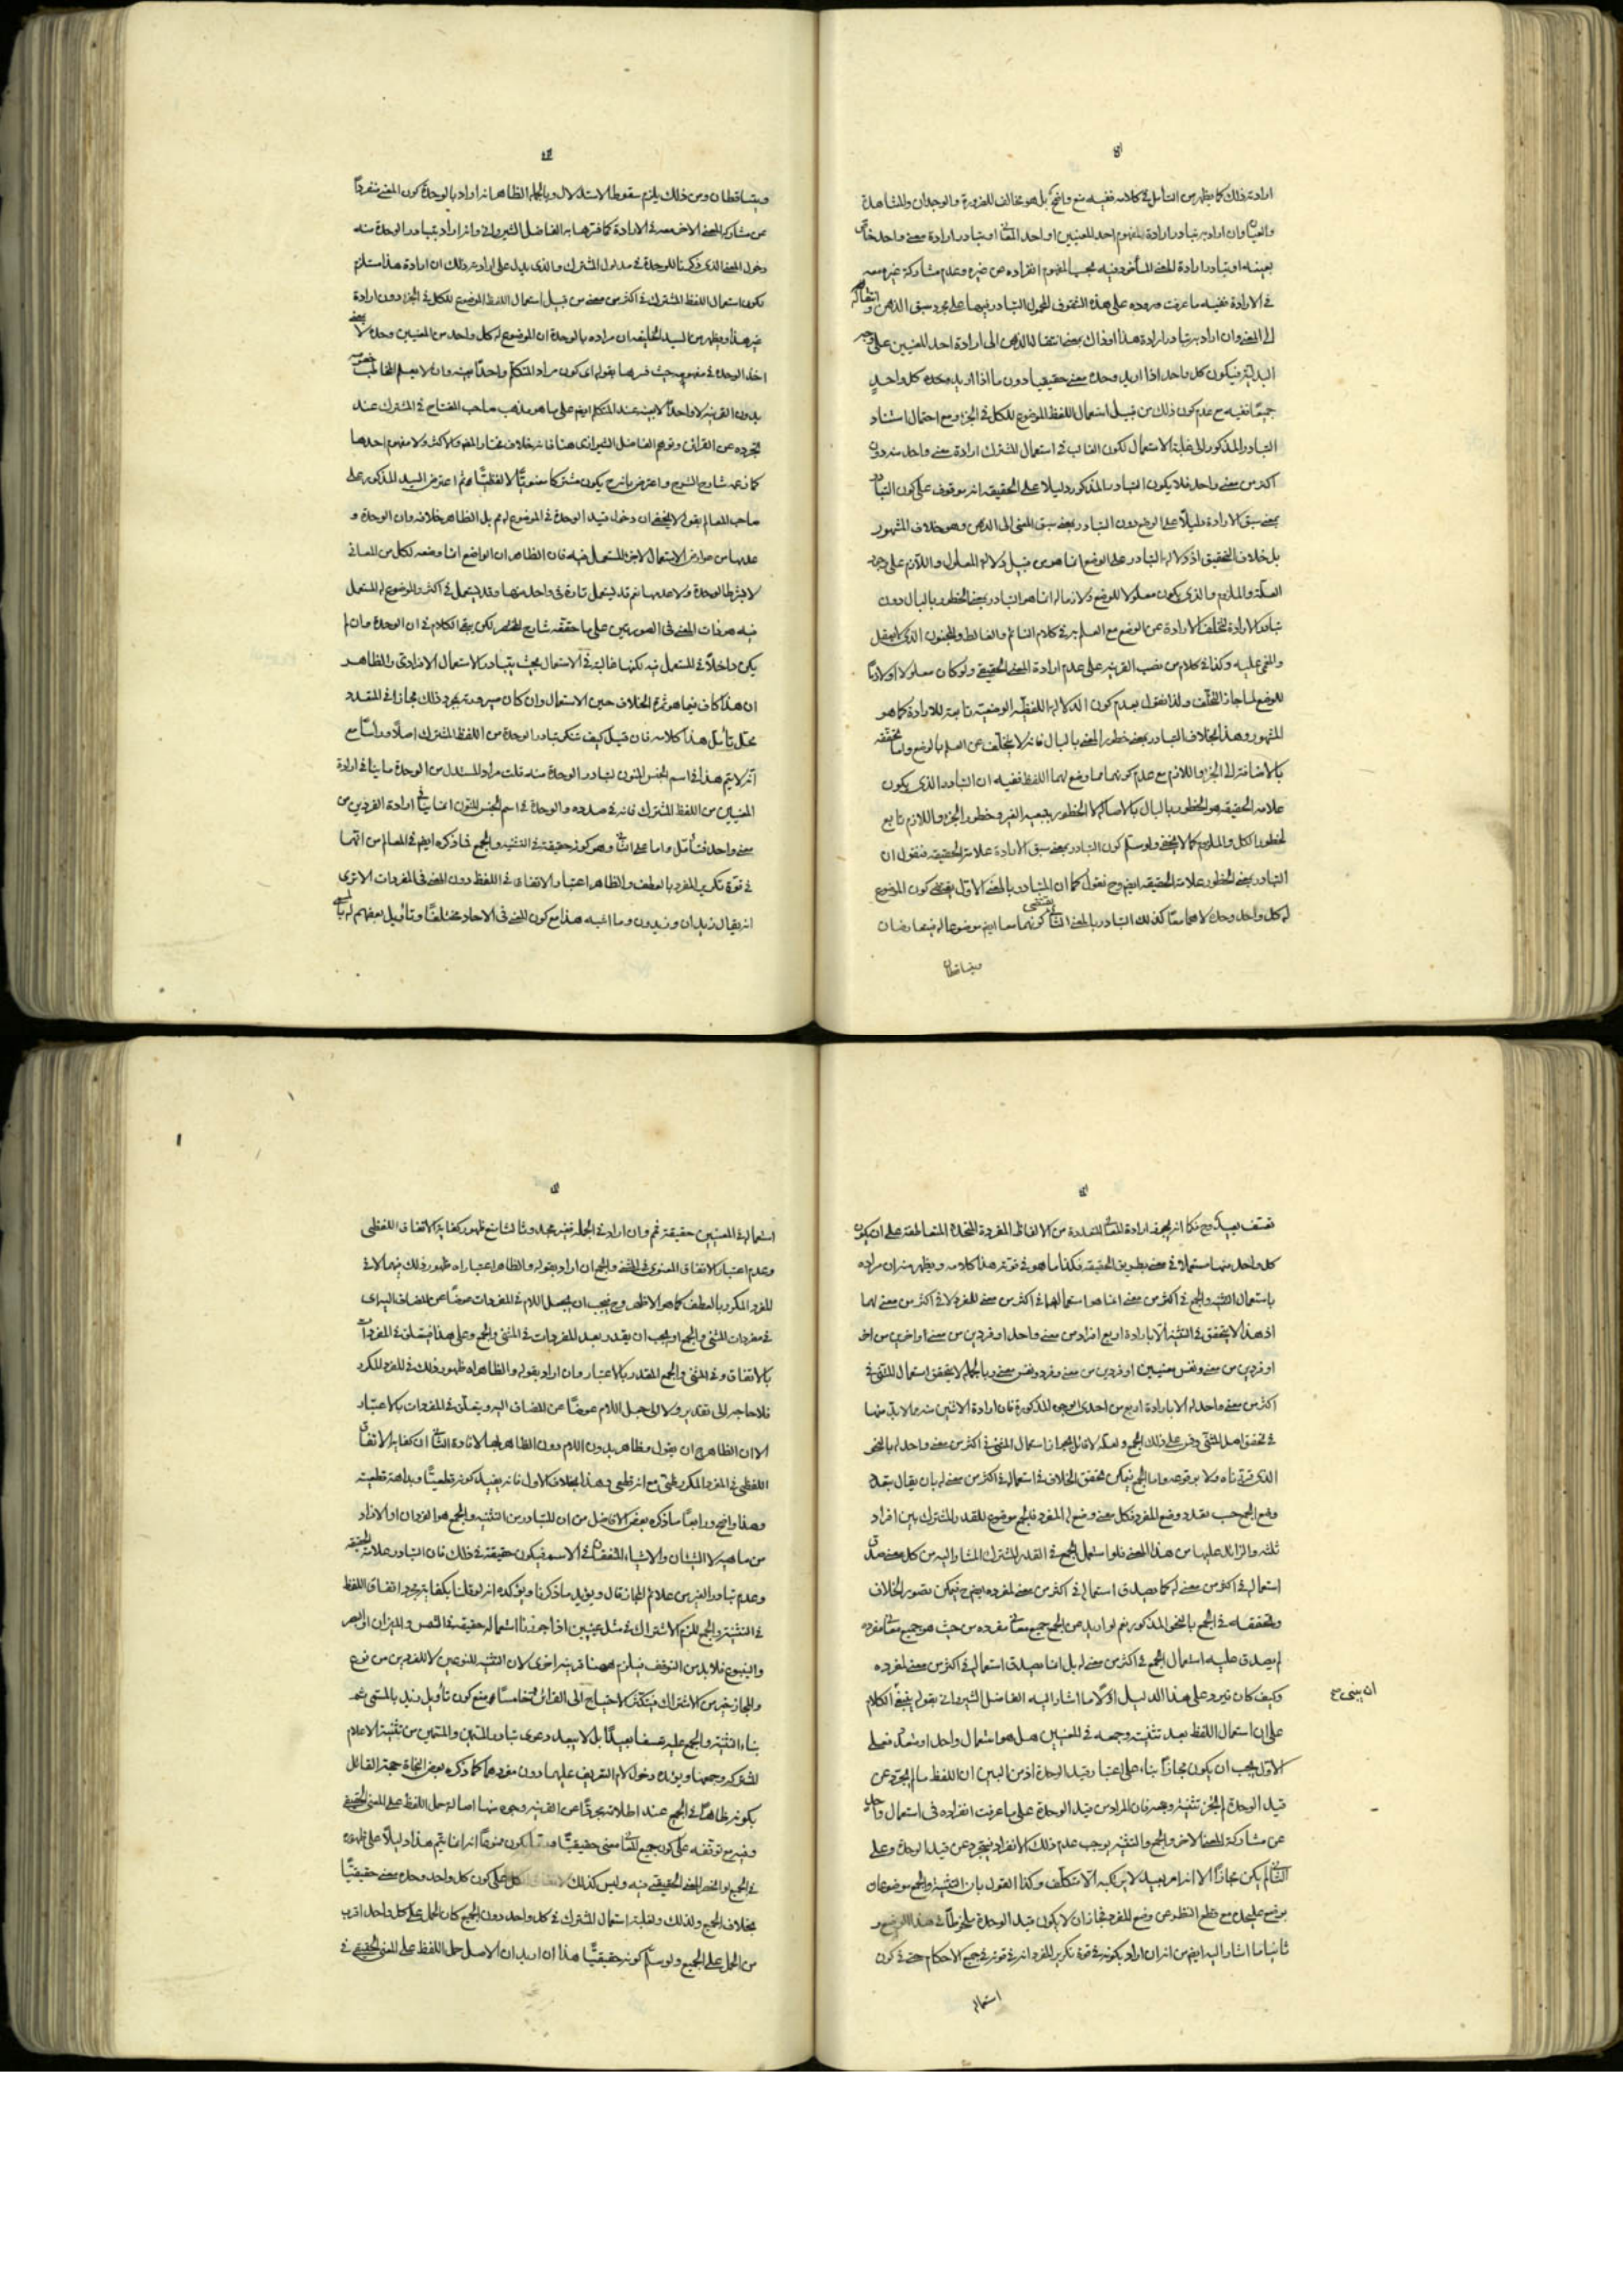 ارادة ذلك كما يظهر من التأمل في كلامه ففيه منع واضح بل هو مخالف للضرورة والوجدان والمشاهدة
والعيان وان اراد به تبادر ارادة المفهوم احد المعنيين او احد المعاني او تبادر ارادة معنى واحد خاص
بعينه او تبادر ارادة المعنى المأخوذ فيه بحسب المفهوم انفراده عن غيره وعدم مشاركة غيره معه
في الارادة ففيه ما عرفت وروده على هذه الشقوق المحمول التبادر فيها على مجرد سبق الذهن وانتقاله
الى المعنى وان اراد به تبادر ارادة هذا او ذاك بمعنى انتقال الذهن الى ارادة احد المعنيين على وجه
البدلية فيكون كل واحد اذا اريد وحده معنى حقيقيا دون ما اذا اريد معه كل واحد
جميعا ففيه مع عدم كون ذلك من قبيل استعمال اللفظ الموضوع للكل في الجزء ومع احتمال استناد
التبادر المذكور الى غلبة الاستعمال لكون الغالب في استعمال المشترك ارادة معنى واحد منه دون
اكثر من معنى واحد فلا يكون التبادر المذكور دليلا على الحقيقة انه موقوف على كون التبادر
بمعنى سبق الارادة دليلا على الوضع دون التبادر بمعنى سبق المعنى الى الذهن وهو خلاف المشهور
بل خلاف التحقيق اذ دلالة التبادر على الوضع انما هو من قبيل دلالة المعلول واللازم على وجود
العلة والملزوم والذي يكون معلولا للوضع ولازما له انما هو التبادر بمعنى الخطور بالبال دون
تبادر الارادة لتخلف الارادة عن الوضع مع العلم به في كلام النائم والغالط والمجنون الذي لا يعقل
والمغمى عليه وكذا في كلام من نصب القرينة على عدم ارادة المعنى الحقيقي ولو كان معلولا او لازما
للوضع لما جاز التخلف ولذا نقول بعدم كون الدلالة اللفظية الوضعية تابعة للارادة كما هو
المشهور وهذا بخلاف التبادر بمعنى خطور المعنى بالبال فانه لا يتخلف عن العلم بالوضع واما تحققه
بالاضافة الى الجزء واللازم مع عدم كونهما مما وضع لهما اللفظ ففيه ان التبادر الذي يكون
علامة الحقيقة هو الخطور بالبال بالاصالة لا الخطور بتبعية الغير وخطور الجزء واللازم تابع
لخطور الكل والملزوم كما لا يخفى ولو سلم كون التبادر بمعنى سبق الارادة علامة الحقيقة فنقول ان
التبادر بمعنى الخطور علامة الحقيقة ايضا وح نقول كما ان التبادر بالمعنى الاول يقتضي كون الموضوع
له كل واحد وحده لا هما معا كذلك التبادر بالمعنى الثاني يقتضي كونهما معا ايضا موضوعا له فيتعارضان
ويتساقطان
ويتساقطان ومن ذلك يلزم سقوط الاستدلال وبالجملة الظاهر انه اراد بالوحدة كون المعنى منفردا
عن مشاركة المعنى الاخر معه في الارادة كما فسرها به الفاضل الشيرواني وانه اراد بتبادر الوحدة منه
دخول المعنى الذي ذكرنا للوحدة في مدلول المشترك والذي يدل على ارادته ذلك ان ارادة هذا مستلزم
لكون استعمال اللفظ المشترك في اكثر من معنى من قبيل استعمال اللفظ الموضوع للكل في الجزء دون ارادة
غير هذا ويظهر من السيد الخليفة ان مراده بالوحدة ان الموضوع له كل واحد من المعنيين وحده لا بمعنى
اخذ الوحدة في مفهومه حيث فسرها بقوله اي كون مراد المتكلم واحدا بعينه وان لا يعلم المخاطب خصوصه
بدون القرينة لا واحدا لا بعينه عند المتكلم ايضا على ما هو مذهب صاحب المفتاح في المشترك عند
تجرده عن القرائن وتوهم الفاضل الشيرازي هنا فانه خلاف مختار المص والاكثر ولا مفهوم احدهما
كما زعمه شارح الشرح واعترض بانه ح يكون مشتركا معنويا لا لفظيا ثم اعترض السيد المذكور على
صاحب المعالم بقوله لا يخفى ان دخول قيد الوحدة في الموضوع له مم بل الظاهر خلافه وان الوحدة و
عدمها من عوارض الاستعمال لا جزء المستعمل فيه فان الظاهر ان الواضع انما وضعه لكل من المعاني
لا بشرط الوحدة ولا عدمها نعم قد يستعمل تارة في واحد منها وقد يستعمل في اكثر والموضوع له المستعمل
فيه هو ذات المعنى في الصورتين على ما حققه شارح المختصر لكن بقي الكلام في ان الوحدة وان لم
يكن داخلا في المستعمل فيه لكنها غالبة في الاستعمال بحيث يتبادر الاستعمال الانفرادي والظاهر
ان هذا كاف فيما هو ثمرة الخلاف حين الاستعمال وان كان صيرورته بمجرد ذلك مجازا في المتعدد
محل تأمل هذا كلامه فان قيل كيف تنكر تبادر الوحدة من اللفظ المشترك اصلا وراسا مع
انه لا يتم هذا في اسم الجنس المنون لتبادر الوحدة منه قلت مراد المستدل من الوحدة ما ينافي ارادة
المعنيين من اللفظ المشترك فانه في صدده والوحدة في اسم الجنس المنون انما ينافي ارادة الفردين من
معنى واحد فتأمل واما على الثاني وهو كونه حقيقة في التثنية والجمع فما ذكره ايضا في المعالم من انهما
في قوة تكرير المفرد بالعطف والظاهر اعتبار الاتفاق في اللفظ دون المعنى في المفردات الا ترى
انه يقال زيدان وزيدون وما اشبه هذا مع كون المعنى في الاحاد مختلفا وتأويل بعضهم له بالمسمى
تعسف بعيد وح فكما انه يجوز ارادة المعاني المتعددة من الالفاظ المفردة المتحدة المتعاطفة على ان يكون
كل واحد منها مستعملا في معنى بطريق الحقيقة فكذا ما هو في قوته هذا كلامه ويظهر منه ان مراده
باستعمال التثنية والجمع في اكثر من معنى انما هو استعمالهما في اكثر من معنى للمفرد لا في اكثر من معنى لهما
اذ هذا لا يتحقق في التثنية الا بارادة اربع افراد من معنى واحد او فردين من معنى واخرين من اخر
او فردين من معنى ونفس معنيين او فردين من معنى وفرد ونفس معنى وبالجملة لا يتحقق استعمال المثنى في
اكثر من معنى واحد له الا بارادة اربع من احدى الوجوه المذكورة فان ارادة الاثنين منه مما لا بد منها
في تحقق اصل المثنى وقس على ذلك الجمع ولعله لا قائل بجواز استعمال المثنى في اكثر من معنى واحد له بالنحو
الذي قررناه ولا بوقوعه واما الجمع فيمكن تحقق الخلاف في استعماله في اكثر من معنى له بان يقال بتعدد
وضع الجمع حسب تعدد وضع المفرد فكل معنى وضع له المفرد فالجمع موضوع للقدر المشترك بين افراد
ثلثه والزائد عليها من هذا المعنى فلو استعمل الجمع في القدر المشترك المشار اليه من كل معنى صدق
استعماله في اكثر من معنى له كما يصدق استعماله في اكثر من معنى لمفرده ايضا ح فيمكن تصور الخلاف
وتحققه في الجمع بالنحو المذكور نعم لو اريد من الجمع جميع معاني مفرده من حيث هو جميع معاني مفرده
لم يصدق عليه استعمال الجمع في اكثر من معنى له بل انما يصدق استعماله في اكثر من معنى لمفرده
وكيف كان فيرد على هذا الدليل اولا ما اشار اليه الفاضل الشيرواني بقوله ينبغي الكلام
ان يبنى مع
على ان استعمال اللفظ بعد تثنيته وجمعه في المعنيين هل هو استعمال واحد او متعدد فعلى
الاول يجب ان يكون مجازا بناء على اعتبار قيد الوحدة اذ من البين ان اللفظ ما لم يجرد عن
قيد الوحدة لم يجز تثنيته وجمعه فان المراد من قيد الوحدة على ما عرفت انفراده في استعمال واحد
عن مشاركة المعنى الاخر والجمع والتثنية يوجب عدم ذلك الانفراد فيتجرد عن قيد الوحدة وعلى
الثاني لم يكن مجازا الا انه امر بعيد لا يرتكبه الا متكلف وكذا القول بان التثنية والجمع موضوعان
بوضع عليحدة مع قطع النظر عن وضع المفرد فجاز ان لا يكون قيد الوحدة ملحوظا في هذا الوضع و
ثانيا ما اشار اليه ايضا من انه ان اراد بكونه في قوة تكرير المفرد انه في قوته في جميع الاحكام حتى في كون
استعماله
استعماله في المعنيين حقيقة فمم وان اراد في الجملة فغير مجد وثالثا منع ظهور كفاية الاتفاق اللفظي
وعدم اعتبار الاتفاق المعنوي في المثنى والجمع ان اراد بقوله والظاهر اعتباراه ظهور ذلك فيهما لا في
المفرد المكرر بالعطف كما هو الاظهر وح فيجب ان يجعل اللام في المفردات عوضا عن المضاف اليه اي
في مفردات المثنى والجمع او يجب ان يقدر بعد المفردات في المثنى والجمع وعلى هذا فيتعلق في المفردات
بالاتفاق وفي المثنى والجمع المقدر بالاعتبار وان اراد بقوله والظاهر اه ظهور ذلك في المفرد المكرر
فلا حاجة الى تقدير ولا الى جعل اللام عوضا عن المضاف اليه ويتعلق في المفردات بالاعتبار
الا ان الظاهر ح ان يقول وظاهر بدون اللام دون الظاهر معها لافادة الثاني ان كفاية الاتفاق
اللفظي في المفرد المكرر ظني مع انه قطعي وهذا بخلاف الاول فانه يفيد كونه قطعيا وبداهة قطعيته
وهذا واضح ورابعا ما ذكره بعض الافاضل من ان المتبادر من التثنية والجمع هو الفردان او الافراد
من ماهية لا الشيئان والاشياء المتفقان في الاسم فيكون حقيقة في ذلك فان التبادر علامة الحقيقة
وعدم تبادر الغير من علائم المجاز قال ويؤيد ما ذكرنا ويؤكده انه لو قلنا بكفاية مجرد اتفاق اللفظ
في التثنية والجمع للزم الاشتراك في مثل عينين اذا جوزنا استعماله حقيقة في الشمس والميزان او البصر
والينبوع فلا بد من التوقف فيلزم ههنا قرينة اخرى لان التثنية للنوعين لا للفردين من نوع
والمجاز خير من الاشتراك فيتكثر الاحتياج الى القرائن وخامسا منع كون تأويل زيد بالمسمى ثم
بناء التثنية والجمع عليه تعسفا بعيدا بل لا يبعد دعوى تبادر المسمين والمسمين من تثنية الاعلام
المشتركة وجمعها ويؤيده دخول لام التعريف عليهما دون مفردهما كما ذكره بعض النحاة حجة القائل
بكونه ظاهرا في الجمع عند اطلاقه مجردا عن القرينة وجوه منها اصالة حمل اللفظ على المعنى الحقيقي
وفيه مع توقفه على كون جميع المعاني معنى حقيقيا وقد يكون ممنوعا انه انما يتم هذا دليلا على ظهوره
في الجميع لو انحصر المعنى الحقيقي فيه وليس كذلك كل على كون كل واحد وحده معنى حقيقيا
بخلاف الجميع ولذلك ولغلبة استعمال المشترك في كل واحد دون الجميع كان الحمل على كل واحد اقرب
من الحمل على الجميع ولو سلم كونه حقيقيا هذا ان اريد ان الاصل حمل اللفظ على المعنى الحقيقي في